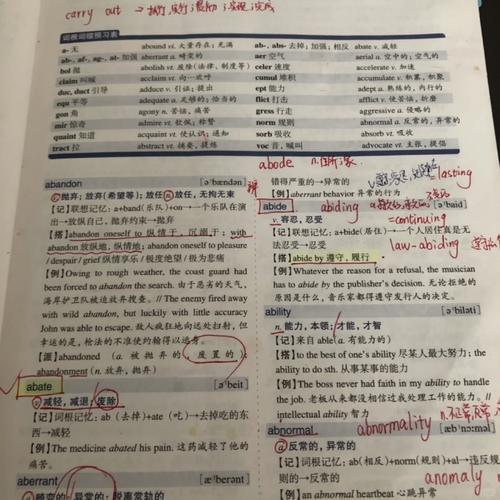 carry out
词根词缀预习表
a- 无
abound vi. 大量存在；充满
ab-, abs- 去掉；加强；相反
abate v. 减轻
ab-, af-, ag-, at- 加强
aberrant a. 异常的
aer 空气
aerial a. 空中的；空气的
bol 抛
abolish vt. 废除(法律、制度等)
celer 速度
accelerate v. 加速
claim 叫喊
acclaim vt. 向…欢呼
cumul 堆积
accumulate v. 积累，积聚
duc, duct 引导
adduce v. 引证；提出
ept 能力
adept a. 熟练的，内行的
equ 平等
adequate a. 足够的；恰当的
flict 打击
afflict v. 使苦恼，折磨
gon 角
agony n. 苦恼，痛苦
gress 行走
aggressive a. 侵略的
mir 惊奇
admire vt. 钦佩，称赞
norm 规则
abnormal a. 反常的，异常的
quaint 知道
acquaint vt. 使认识；通知
sorb 吸收
absorb vt. 吸收
tract 拉
abstract vt. 摘要，提炼
voc 音，喊叫
advocate vt. 主张，提倡
abandon [əˈbændən]
vt. 抛弃；放弃(希望等)；放任 n. 放任，无拘无束
【记】联想记忆：a+band(乐队)+on→一个乐队在演
出→放纵自己，抛弃约束→抛弃
【搭】abandon oneself to 纵情于，沉溺于；with
abandon 放纵地，纵情地；abandon oneself to pleasure
/ despair / grief 纵情享乐/极度绝望/极为悲痛
【例】Owing to rough weather, the coast guard had
been forced to abandon the search. 由于恶劣的天气，
海岸护卫队被迫放弃搜查。// The enemy fired away
with wild abandon, but luckily with little accuracy
John was able to escape. 敌人疯狂地向远处扫射，但
幸运的是，枪法的不准使约翰得以逃身。
【派】abandoned (a. 被抛弃的，废置的)；
abandonment (n. 放弃，抛弃)
abate [əˈbeit]
v. 减轻，减退；废除
【记】词根记忆：ab (去掉)+ate (吃)→去掉吃的东
西→减轻
【例】The medicine abated his pain. 这药减轻了他的
痛苦。
aberrant [æˈberənt]
abode n.
错得严重的→异常的
lasting
【例】aberrant behavior 异常的行为
abide abiding [əˈbaid]
v. 容忍，忍受
=continuing
【记】联想记忆：a+bide(居住)→一个人居住真是无
法忍受→忍受
law-abiding
【搭】abide by 遵守，履行
【例】Whatever the reason for a refusal, the musician
has to abide by the publisher's decision. 无论拒绝的
原因是什么，音乐家都得遵守发行人的决定。
ability [əˈbiləti]
n. 能力，本领；才能，才智
【记】来自able(a. 有能力的)
【搭】to the best of one's ability 尽某人最大努力；the
ability to do sth. 从事某事的能力
【例】The boss never had faith in my ability to handle
the job. 老板从来都没相信过我处理工作的能力。//
intellectual ability 智力
abnormality n.
abnormal [æbˈnɔːməl]
a. 反常的，异常的
【记】词根记忆：ab(相反)+norm(规则)+al→违反规
则的→反常的
anomaly
【例】an abnormal heartbeat 心跳异常